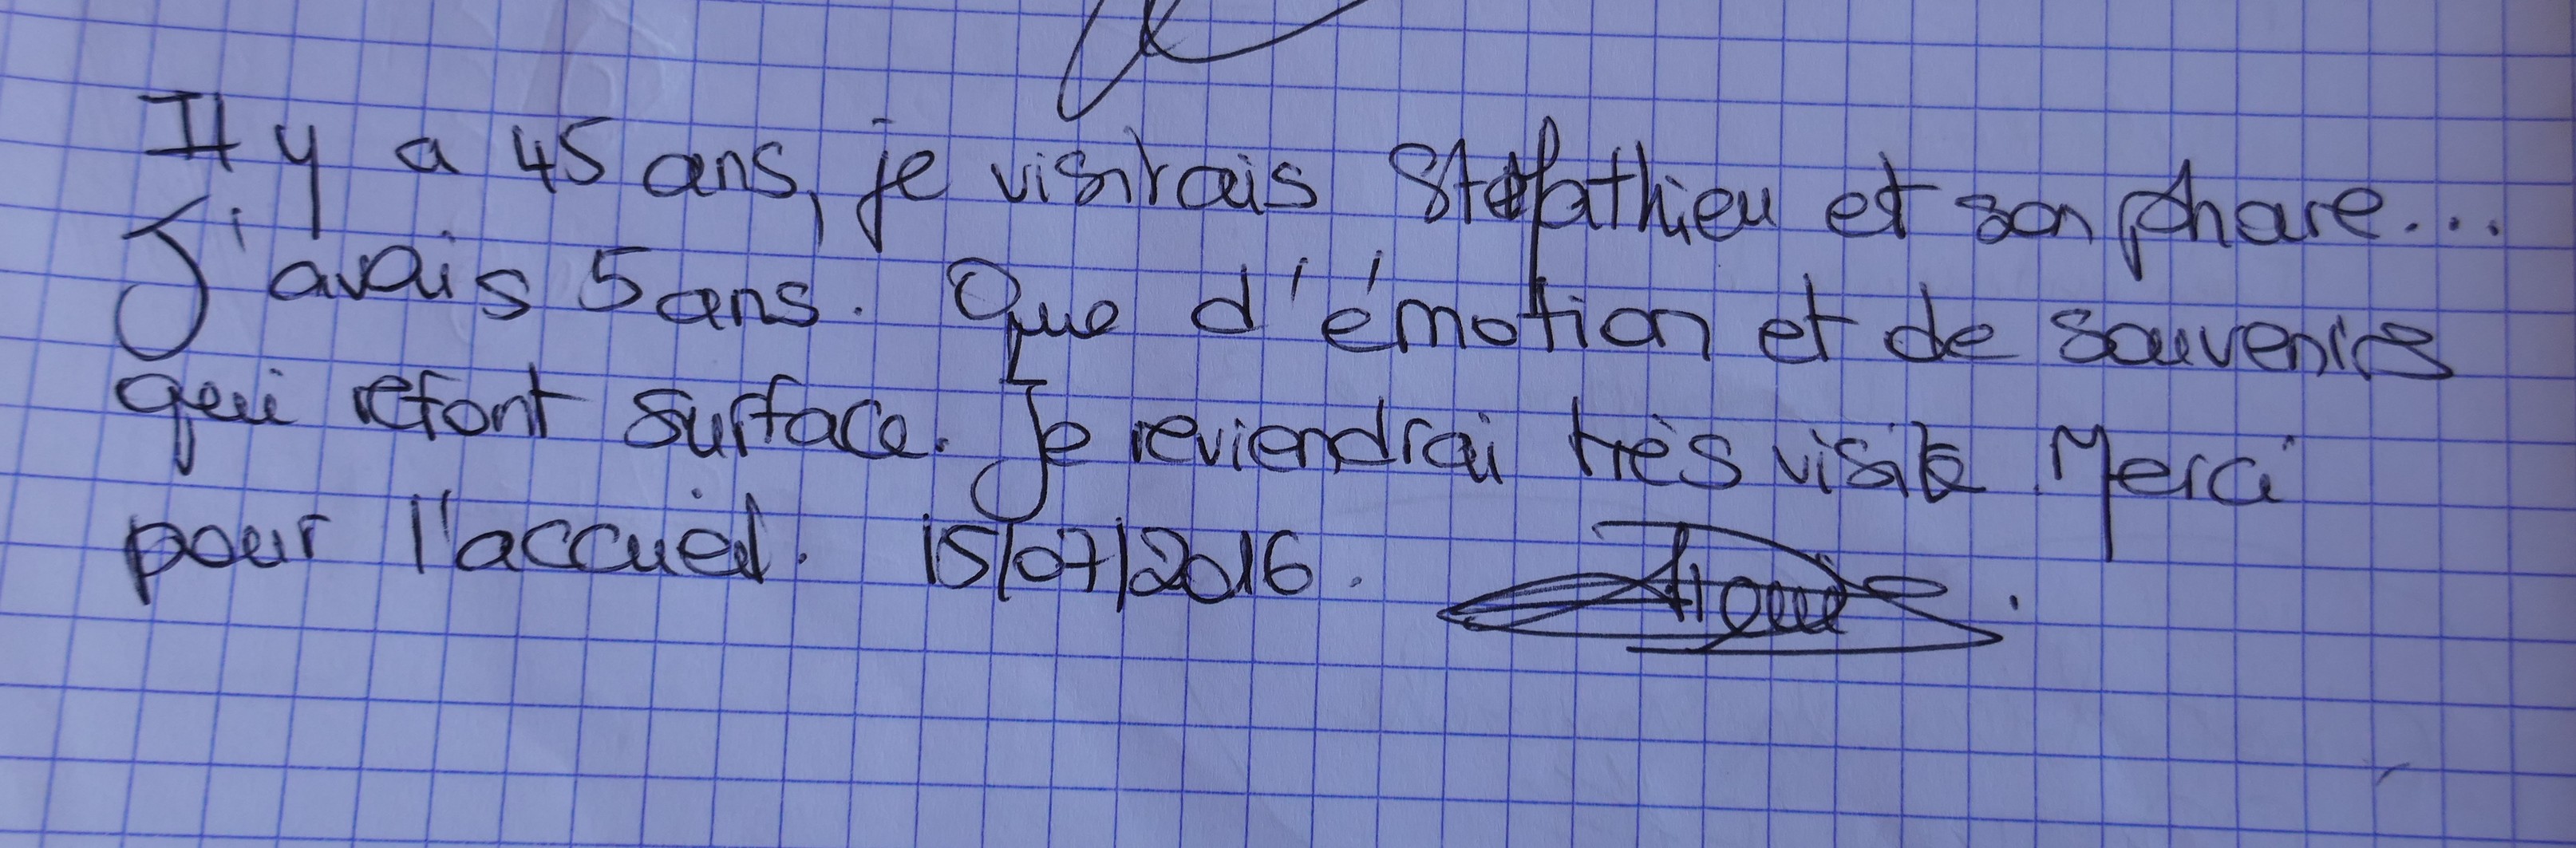 Il y a 45 ans, je visitais St Mathieu et son phare...
J'avais 5 ans. Que d'émotion et de souvenirs
qui refont surface. Je reviendrai très visite Merci
pour l'accueil. 15/07/2016.